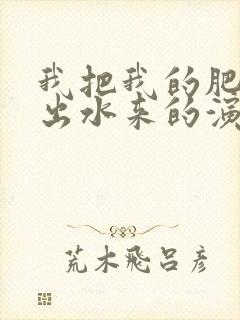 我把我的肥
出水来的演
荒木飛呂彦